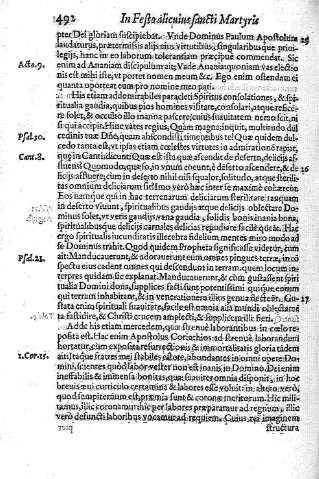 492 In Festo alicuius sancti Martyris
pter Dei gloriam suscipiebat. Vnde Dominus Paulum Apostolum 25
laudaturus, prætermissis aliis eius virtutibus, singularibusque privi-
legiis, hanc in eo laborum tolerantiam præcipuè commendat. Sic
Acto.9. enim ad Ananiam discipulum ait: Vade Anania quoniam vas electio
nis est mihi iste, vt portet nomen meum &c. Ego enim ostendam ei
quanta oporteat eum pro nomine meo pati.
His etiam addemirabiles paratasq́; spiritus consolationes, & spi-
ritualia gaudia, quibus pios homines visitare, consolari, atque reficere
solet, & occulto illo manna pascere, cuius suauitatem nemo scit, ni
Psal.30. si qui accipit. Hinc vates regius, Quàm magna, inquit, multitudo dul
cedinis tuæ Domine, quam abscondisti timentibus te! Quæ quidem dul-
cedo tanta est, vt ipsas etiam coelestes virtutes in admirationè rapiat,
Cant.8. quæ in Canticis dicunt: Quæ est ista quæ ascendit de deserto, delicijs af-
fluens? Quomodo, quæso, in vnum coeunt, è deserto ascendere, & de 26
licijs affluere, cùm in deserto nihil nisi squalor, solitudo, atque sterili-
tas omnium deliciarum sit? Imo verò hæc inter se maximè cohærent.
Eos namque qui in hac terrenarum deliciarum sterilitate tanquam
in deserto viuunt, spiritualibus gaudijs atque delicijs oblectare Do-
minus solet, vt veris gaudijs vana gaudia, solidis bonis inania bona,
spiritualibusque delicijs carnales delicias repudiare facilè queãt. Hac
ergo spiritualis iucunditatis illecebra fidelium mentes miro modo ad
se Dominus trahit. Quod quidem Propheta significasse videtur, cùm
Psal.21. ait: Manducauerunt, & adorauerunt omnes pingues terræ, in co
spectu eius cadent omnes qui descendunt in terram. quem locum in-
terpres quidam sic explanat. Manducauerunt, & cùm gustassent spiri
tualia Domini dona, supplices facti sunt potentissimi quique eorum
qui terram inhabitant, & in venerationem illius genua flectent. Gu- 27
stata enim spirituali suauitate, facile est omnia alia mundi oblectamẽ
ta fastidire, & Christi crucem amplecti, & supplicem illi fieri.
Adde his etiam mercedem, quæ strenuè laborantibus in coelo re-
posita est. Hac enim Apostolus Corinthios ad strenuè laborandum
hortatur, cùm expositâ resurrectionis & immortalitatis gloria tãdem
1.Cor.15. ait: Itaque fratres mei stabiles estote, abundantes in omni opere Do-
mini, scientes quòd labor vester non est inanis in Domino. Dei enim
ineffabilis & immensa bonitas, quæ suauiter omnia disponit, in hoc
breuis æui curriculo certamina & labores esse voluit: in altero verò,
quod sempiternum est, præmia sunt & coronæ meritorum. Hic mili-
tamus, illic coronamur: hic per labores præparamur ad regnum, illic
verò defuncti laboribus vocamur ad requiem. Cuius rei imaginem
structura